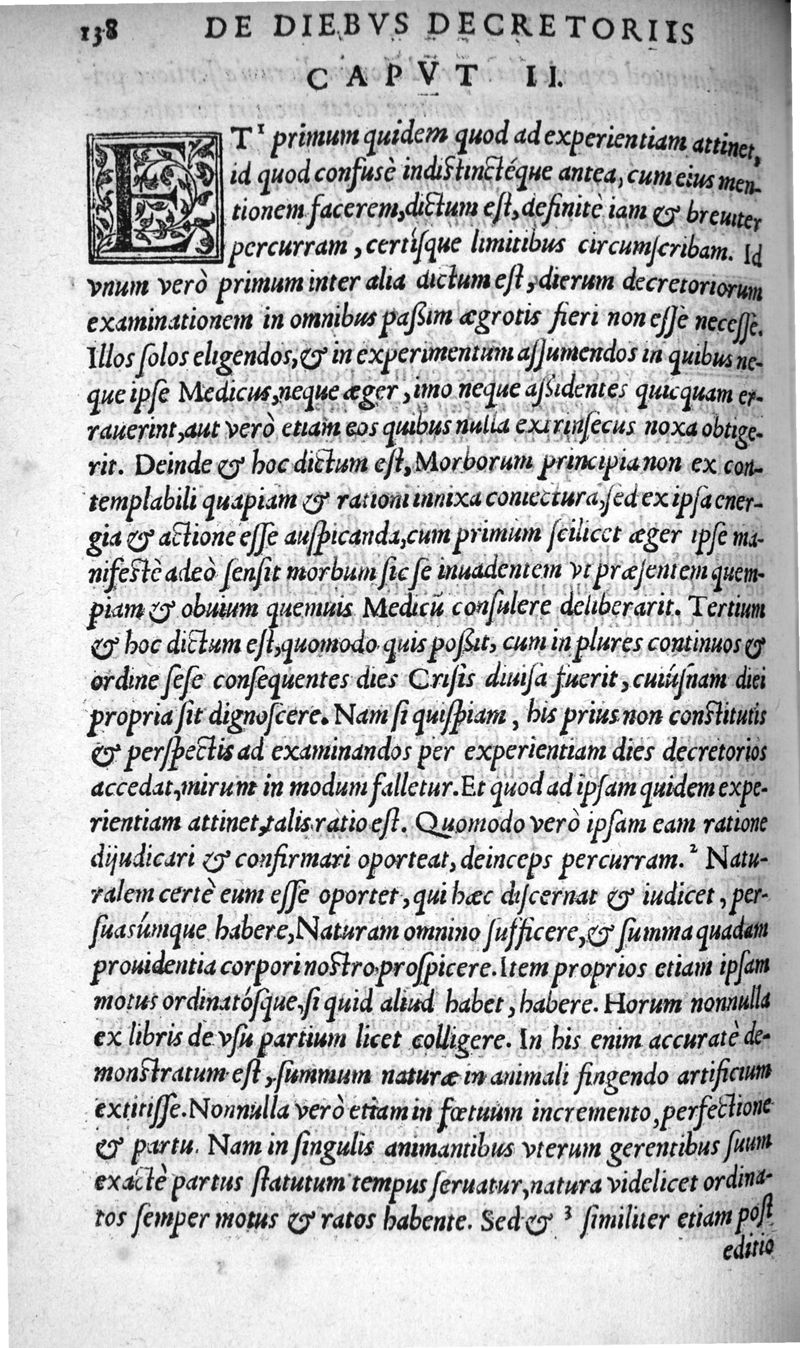 138 DE DIEBVS DECRETORIIS
CAPVT II.
ET¹ primum quidem quod ad experientiam attinet,
id quod confusè indistinctéque antea, cum eius men-
tionem facerem, dictum est, definitè iam & breuiter
percurram, certísque limitibus circumscribam. Id
vnum verò primum inter alia dictum est, dierum decretoriorum
examinationem in omnibus paßim ægrotis fieri non esse necesse.
Illos solos eligendos, & in experimentum assumendos in quibus ne-
que ipse Medicus, neque æger, imo neque aßidentes quicquam er-
rauerint, aut verò etiam eos quibus nulla extrinsecus noxa obtige-
rit. Deinde & hoc dictum est, Morborum principia non ex con-
templabili quapiam & rationi innixa coniectura, sed ex ipsa ener-
gia & actione esse auspicanda, cum primum scilicet æger ipse ma-
nifestè adeò sensit morbum sic se inuadentem vt præsentem quem-
piam & obuium quemuis Medicū consulere deliberarit. Tertium
& hoc dictum est, quomodo quis poßit, cum in plures continuos &
ordine sese consequentes dies Crisis diuisa fuerit, cuiúsnam diei
propria sit dignoscere. Nam si quispiam, his prius non constitutis
& perspectis ad examinandos per experientiam dies decretorios
accedat, mirum in modum falletur. Et quod ad ipsam quidem expe-
rientiam attinet, talis ratio est. Quomodo verò ipsam eam ratione
dijudicari & confirmari oporteat, deinceps percurram.² Natu-
ralem certè eum esse oportet, qui hæc discernat & iudicet, per-
suasúmque habere, Naturam omnino sufficere, & summa quadam
prouidentia corpori nostro prospicere. Item proprios etiam ipsam
motus ordinatósque, si quid aliud habet, habere. Horum nonnulla
ex libris de vsu partium licet colligere. In his enim accuratè de-
monstratum est, summum naturæ in animali fingendo artificium
extitisse. Nonnulla verò etiam in fœtuum incremento, perfectione
& partu. Nam in singulis animantibus vterum gerentibus suum
exactè partus statutum tempus seruatur, natura videlicet ordina-
tos semper motus & ratos habente. Sed & ³ similiter etiam post
editio